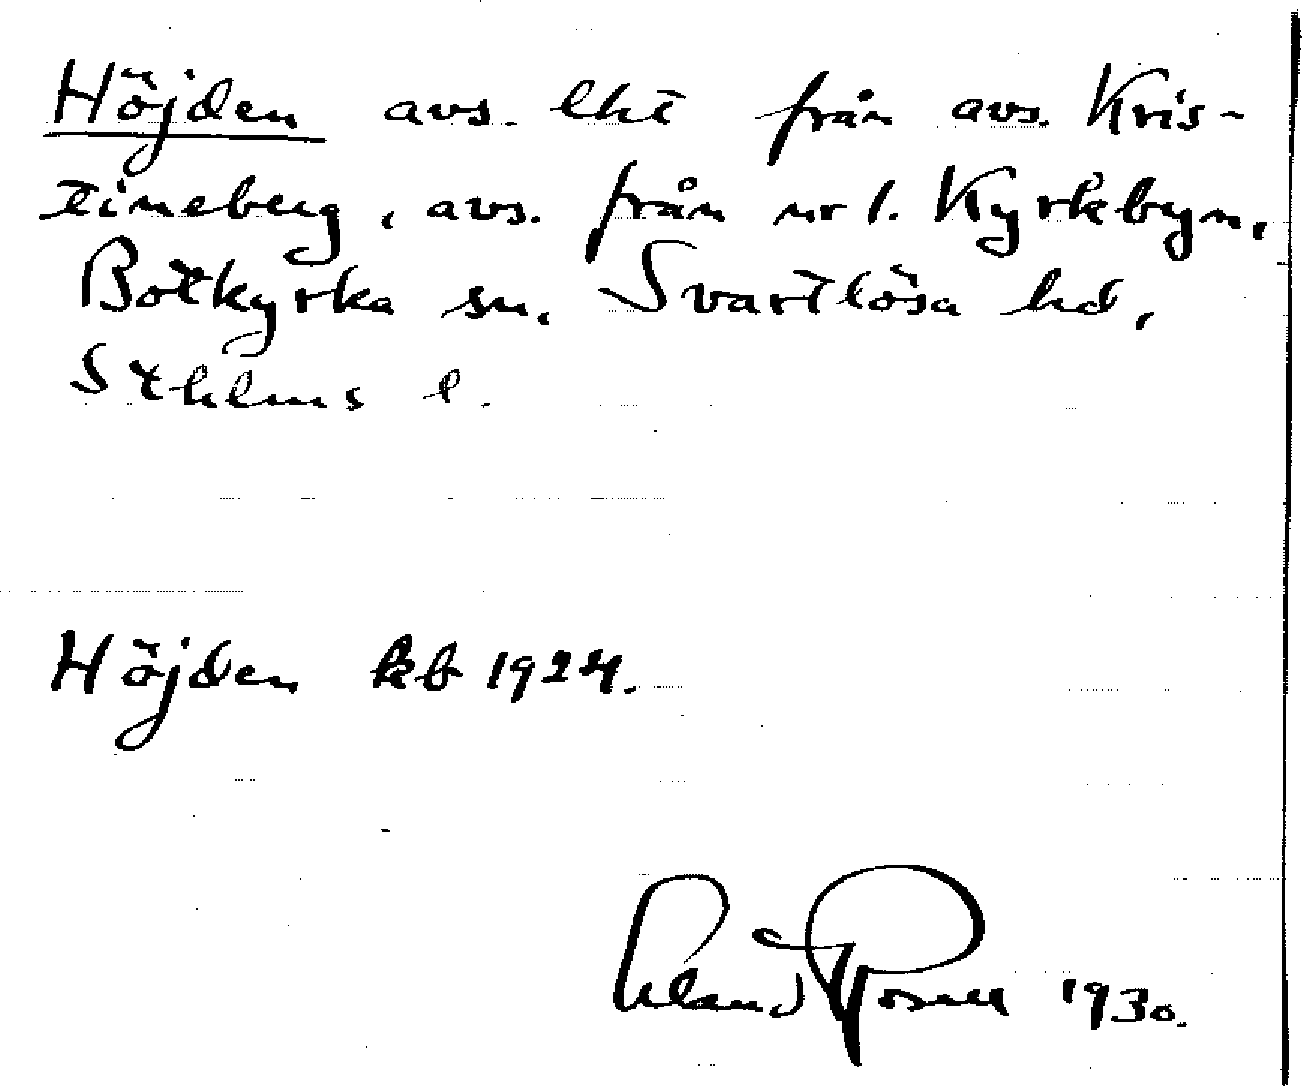 Höjden avs. lht från avs. Kris-
tineberg, avs. från nr 1. Kyrkbyn,
Botkyrka sn. Svartlösa hd,
Sthlms l.
Höjden kb 1924.
Erland Rosell 1930.